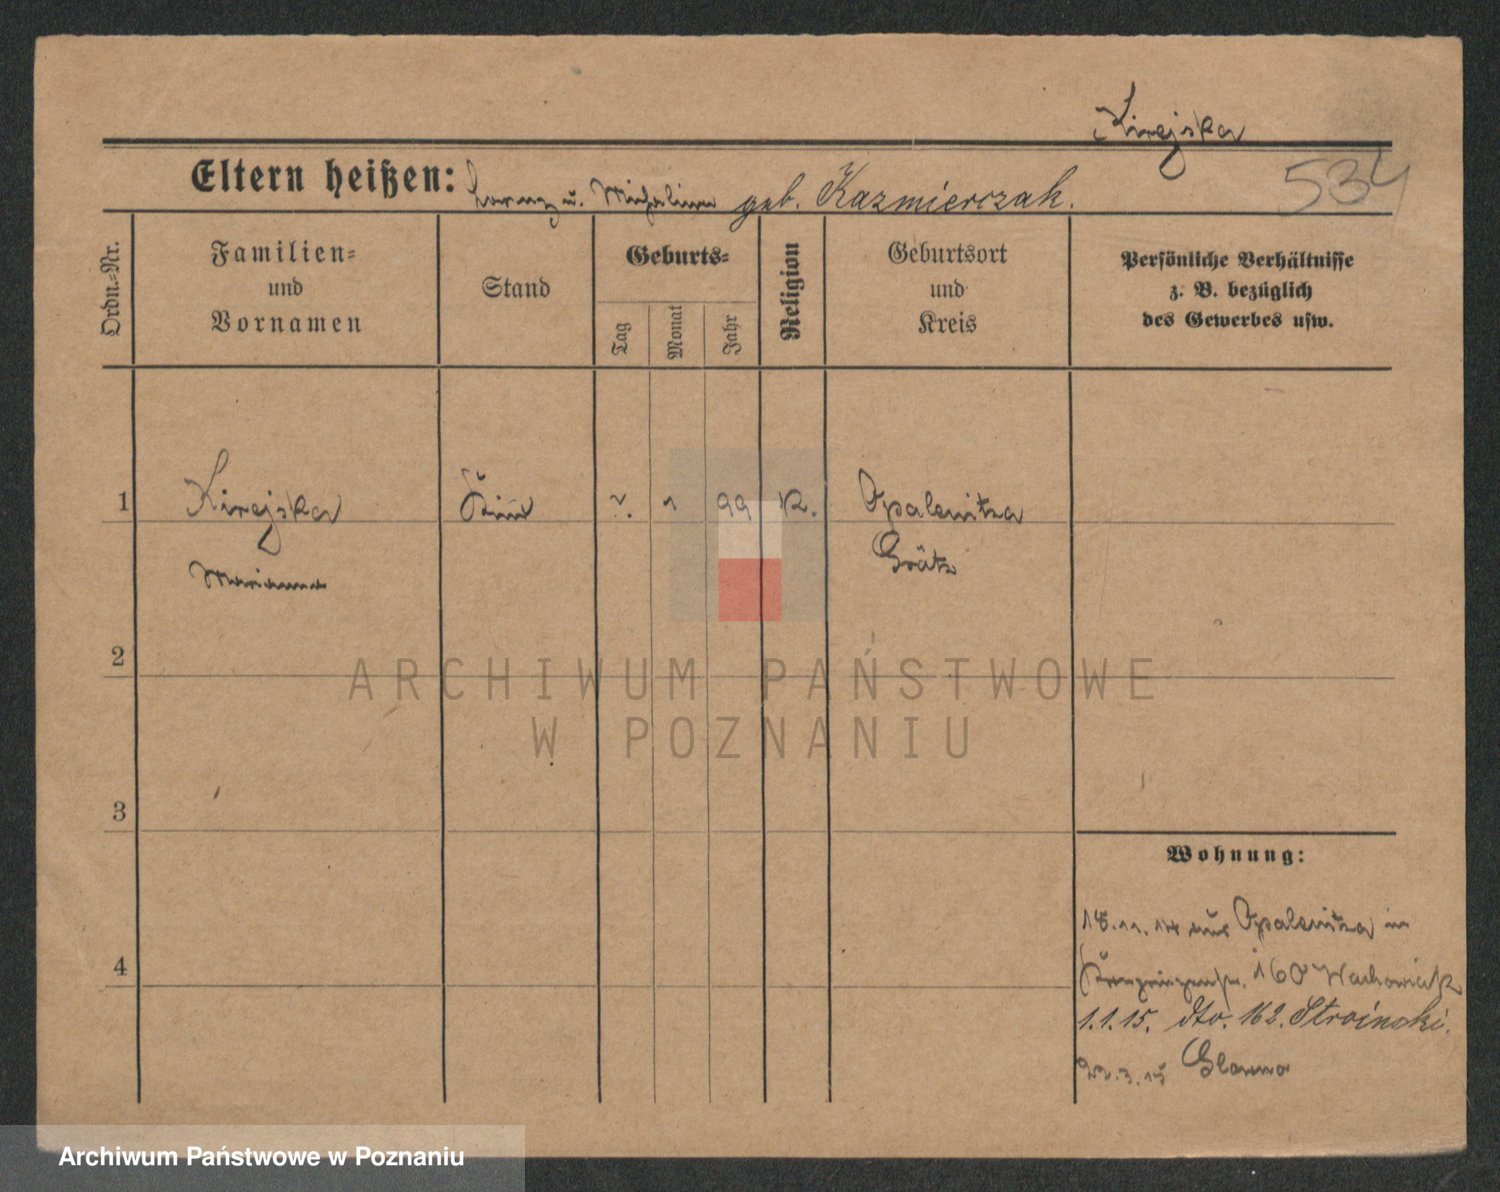 Kirejska
534
Eltern heißen: Lorenz u. Michalina geb. Kazmierczak.
Ordn.=Nr.
Familien=
und
Vornamen
Stand
Geburts=
Tag
Monat
Jahr
Religion
Geburtsort
und
Kreis
Persönliche Verhältnisse
z. B. bezüglich
des Gewerbes usw.
1 Kirejska 1 99 K. Opalenitza
Marianna Grätz
2
ARCHIWUM PAŃSTWOWE
W POZNANIU
3
Wohnung:
18.11.14 aus Opalenitza in
4
Kronprinzenstr. 160 Wachowiak
1.1.15. dto. 162. Stroinski.
22.3.15 Glowno
Archiwum Państwowe w Poznaniu